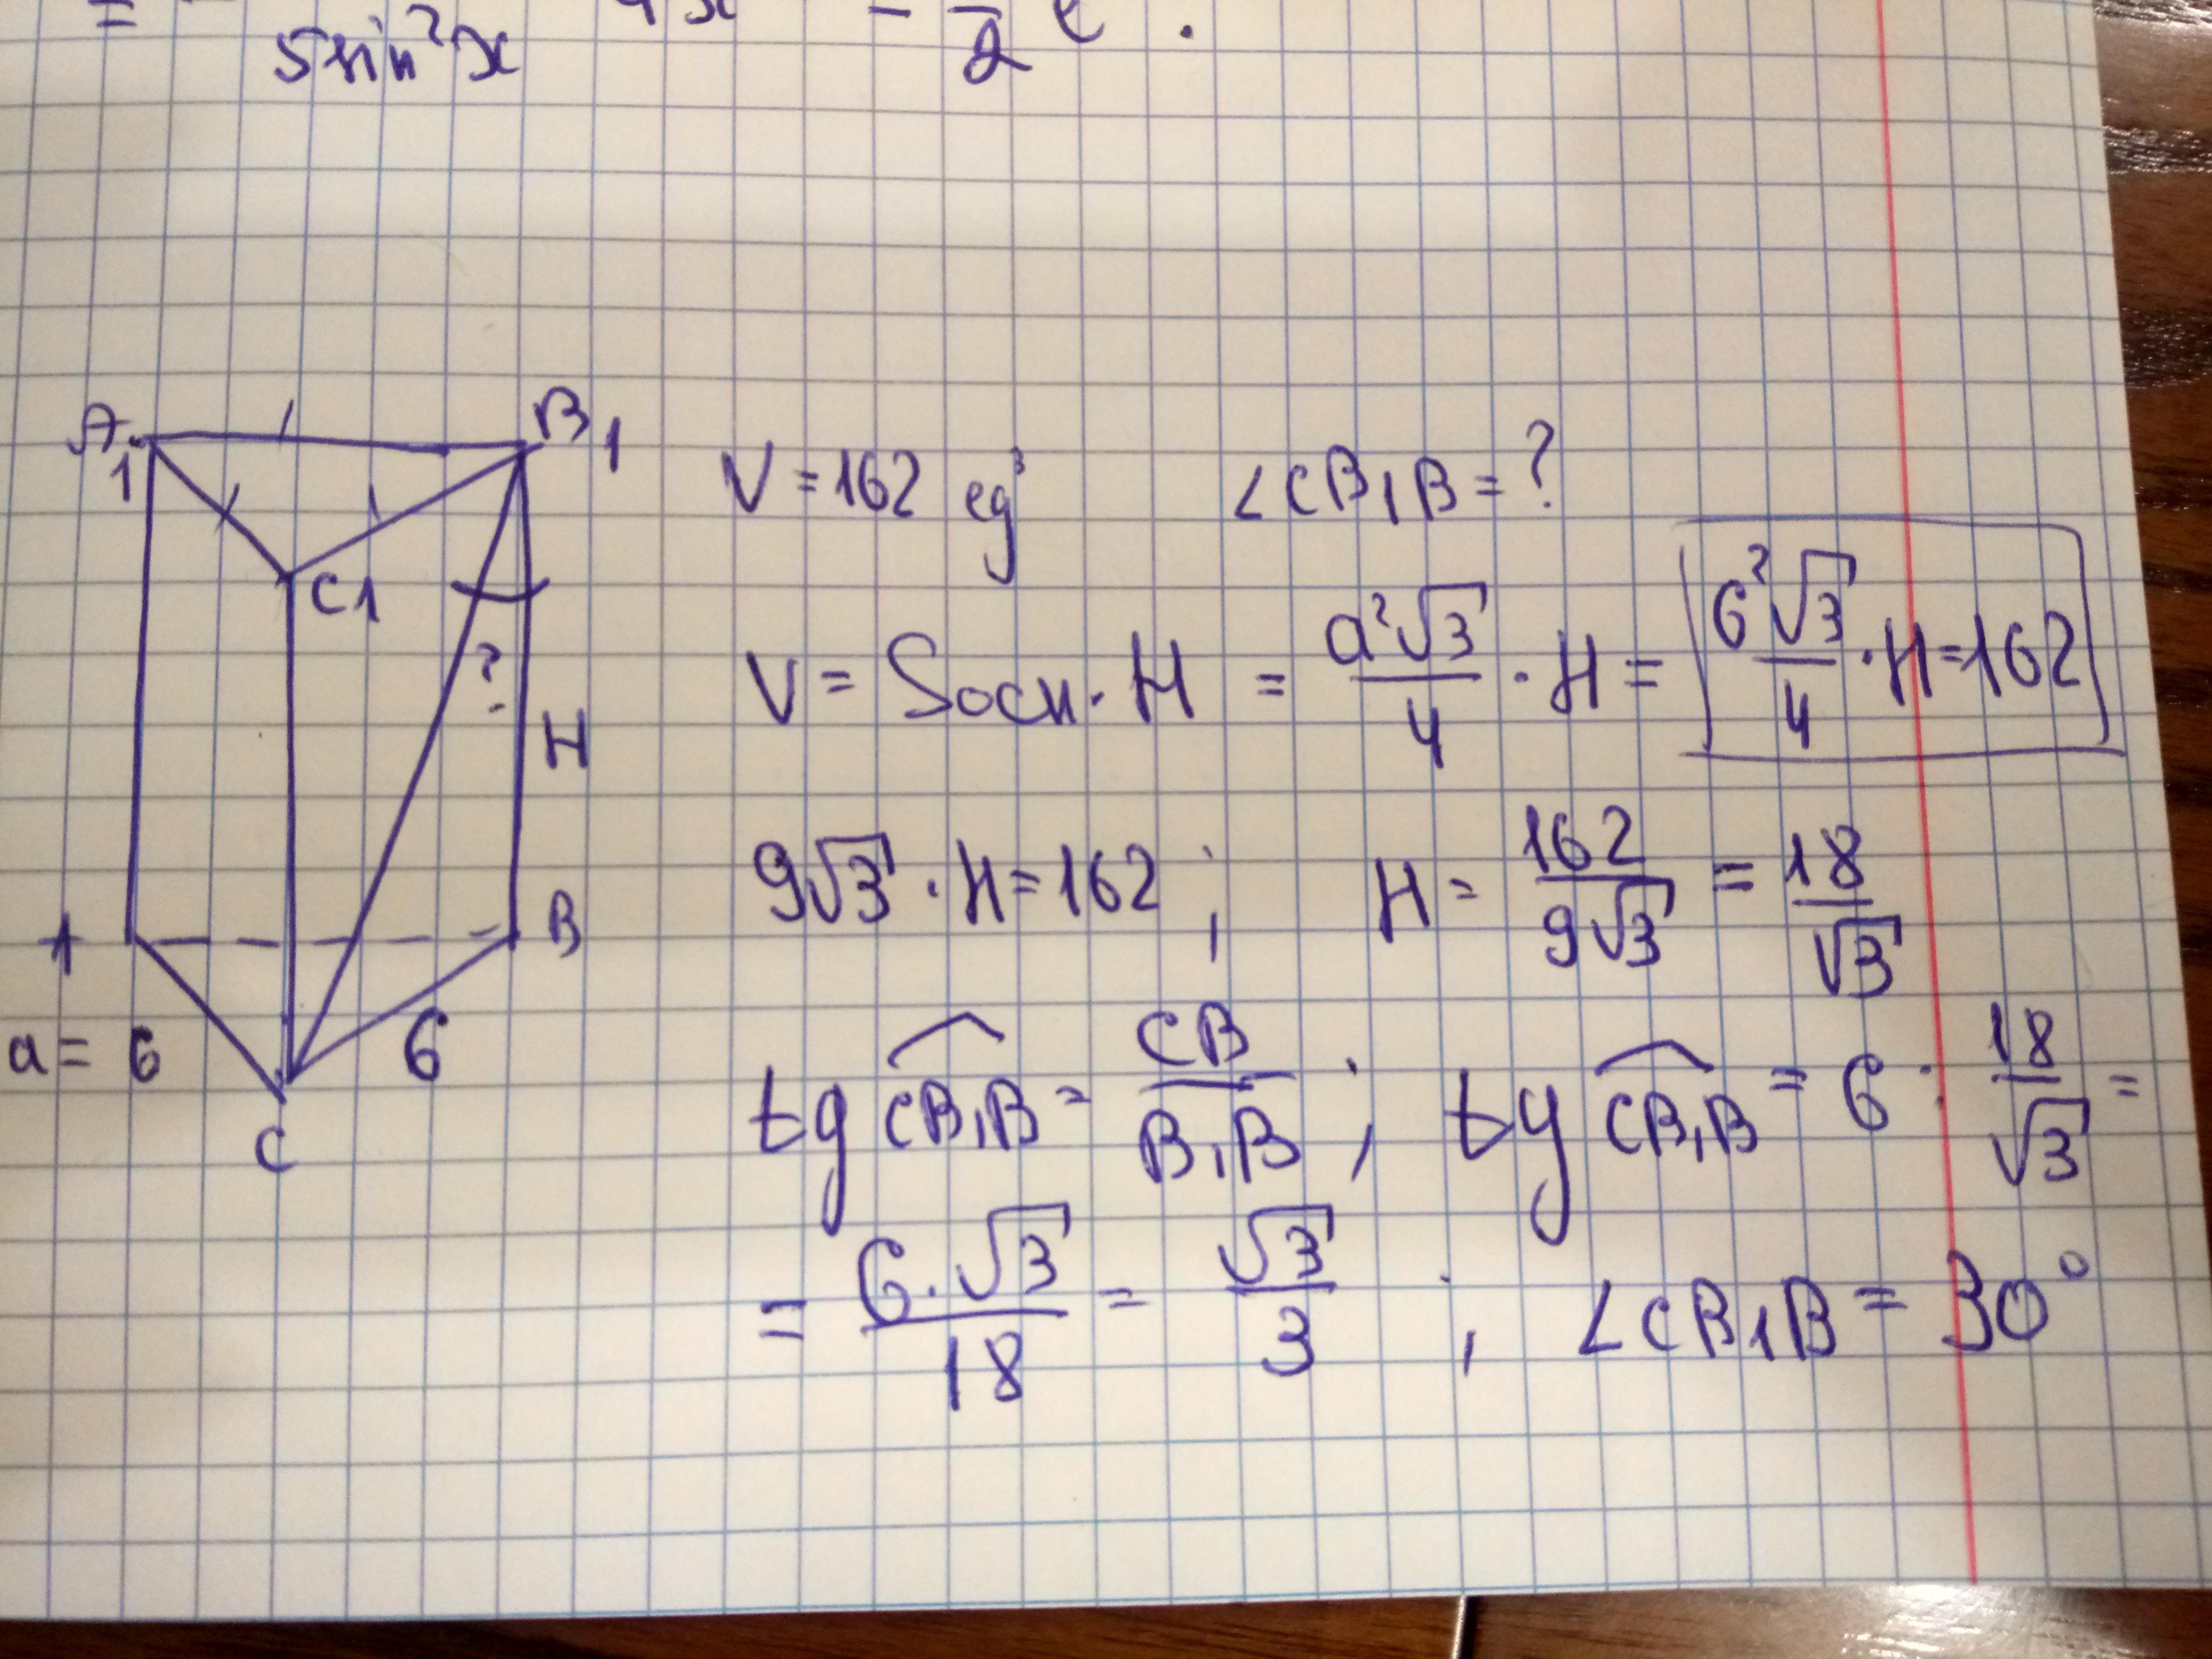 sin²x
2
A1 B1
C1
?
H
A B
a = 6 6
C
V = 162 eg³ ∠CB1B = ?
V = Sосн · H = a²√3/4 · H = 6²√3/4 · H = 162
9√3 · H = 162 ; H = 162/9√3 = 18/√3
tg CB1B = CB/B1B ; tg CB1B = 6 : 18/√3 =
= 6·√3/18 = √3/3 ; ∠CB1B = 30°